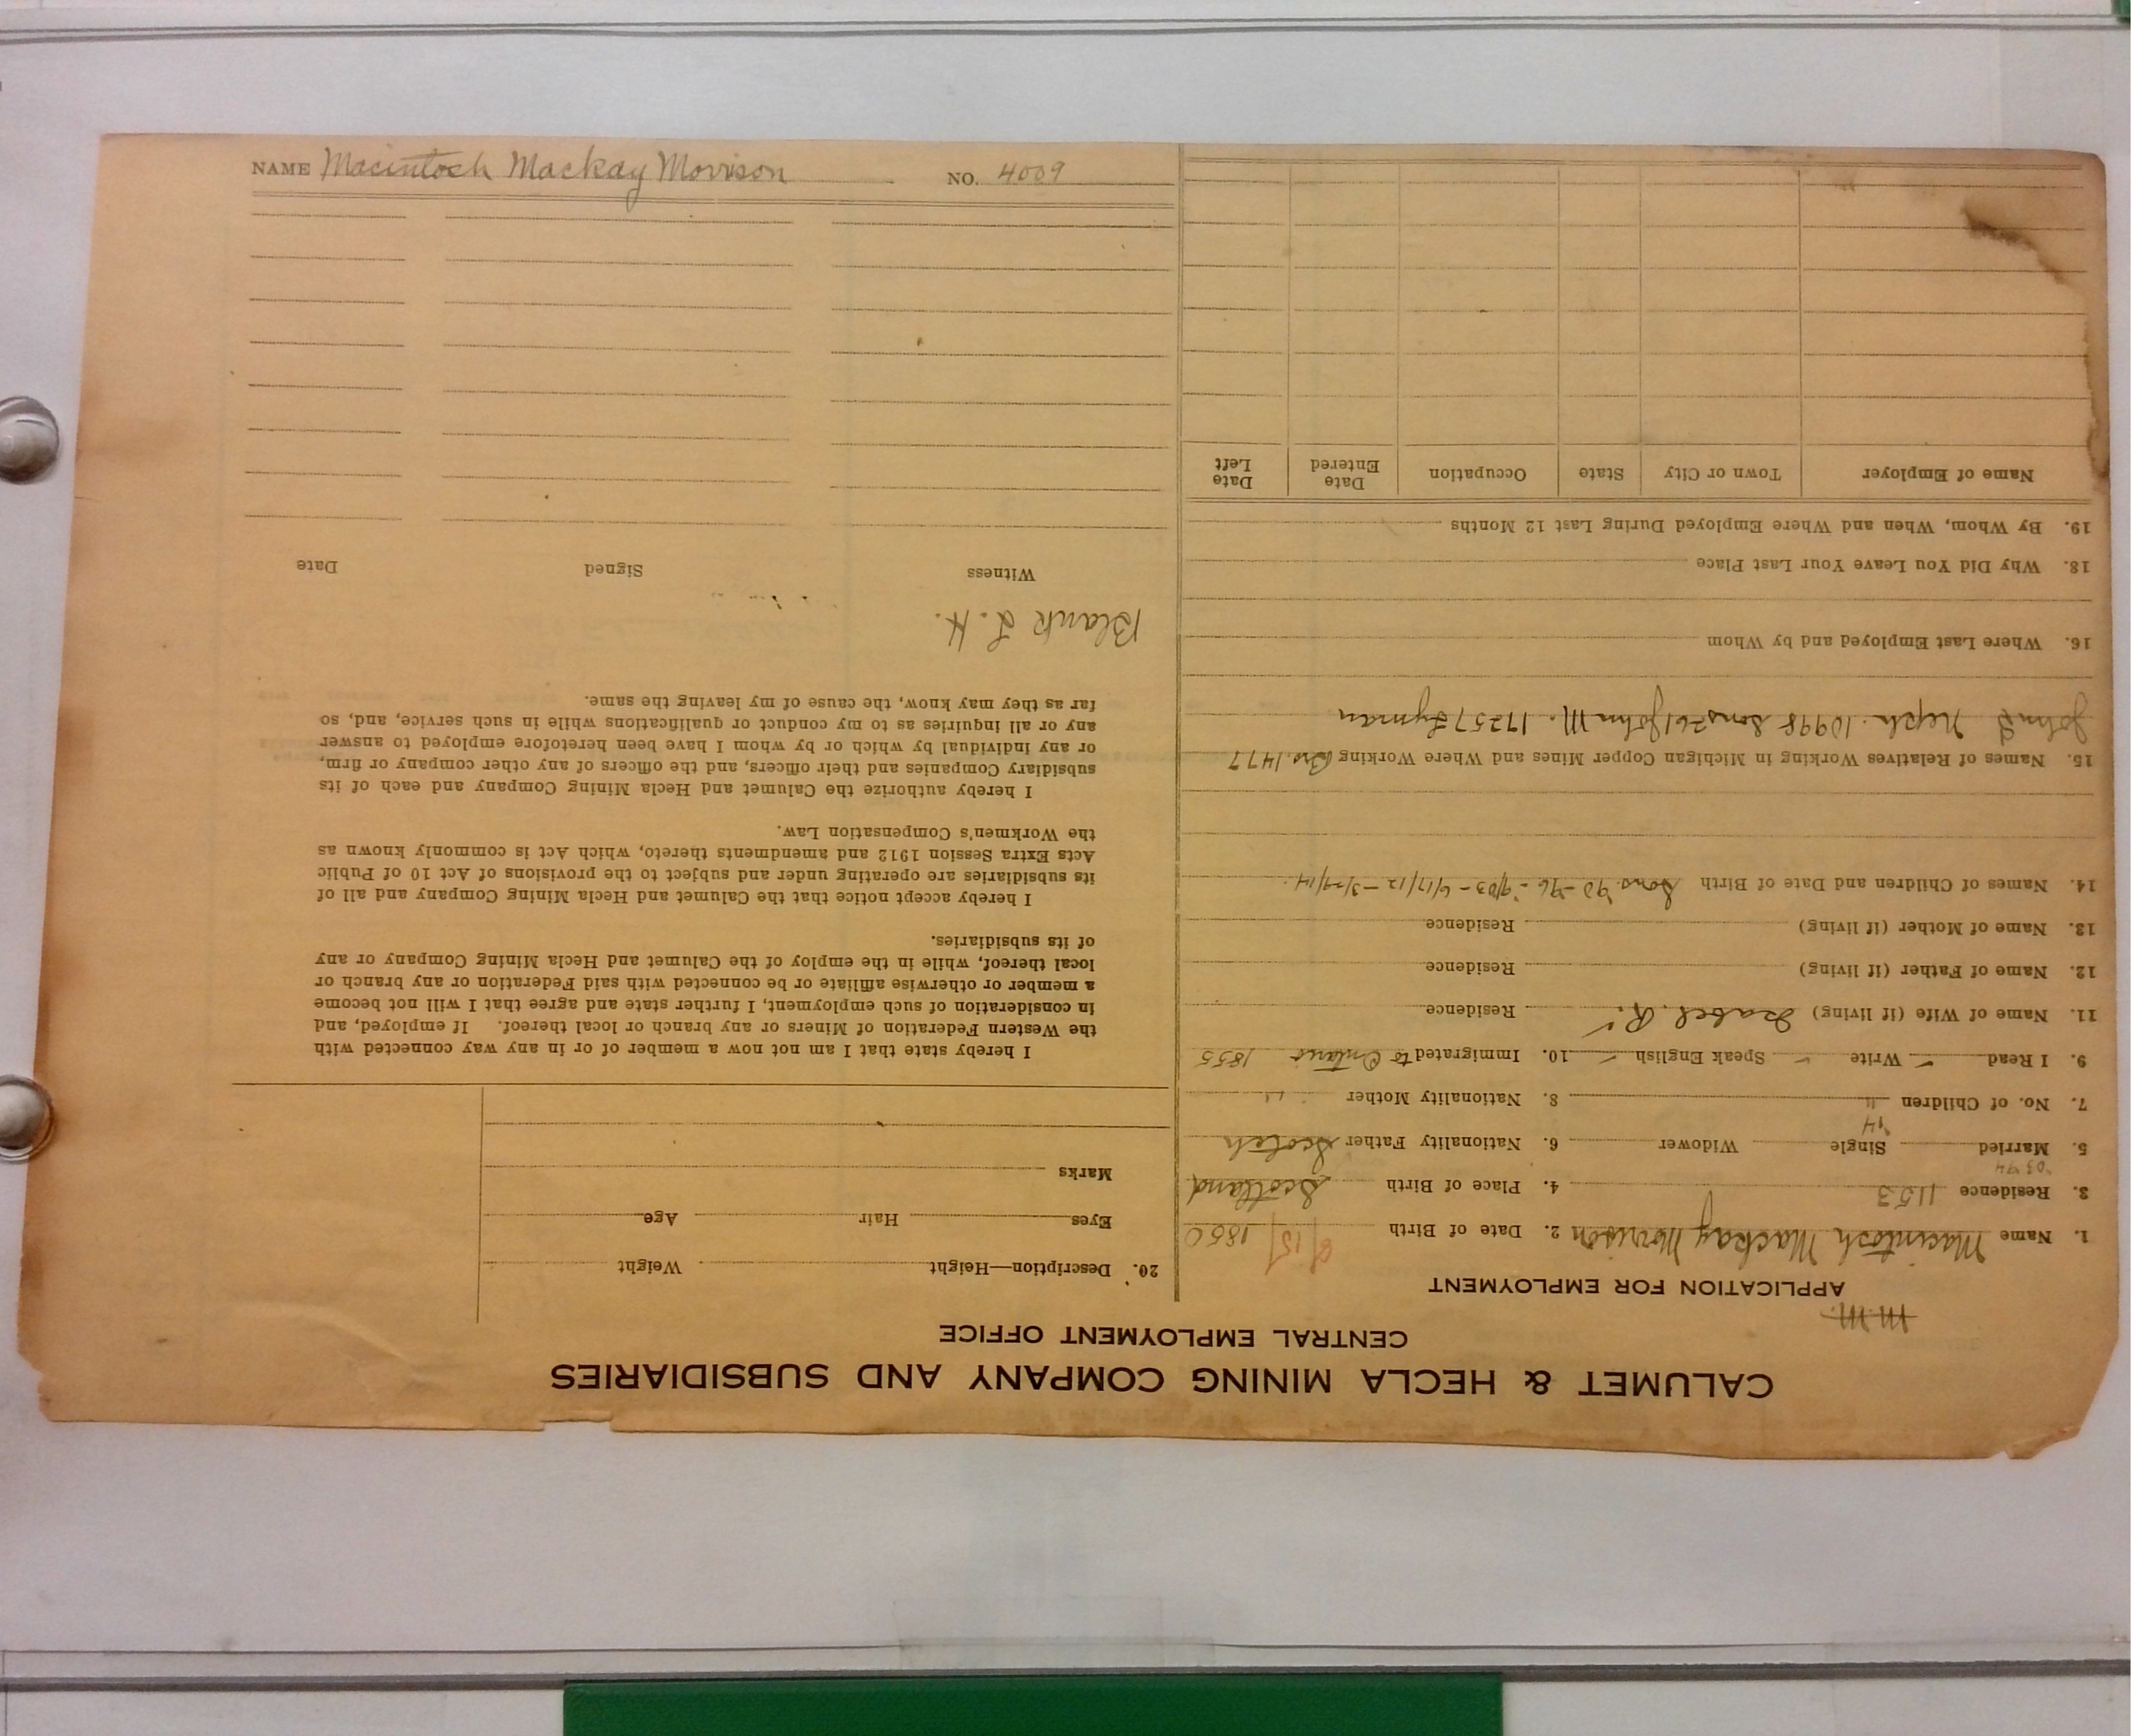 CALUMET & HECLA MINING COMPANY AND SUBSIDIARIES
CENTRAL EMPLOYMENT OFFICE
M.M.
APPLICATION FOR EMPLOYMENT
1. Name Macintosh Mackay Morrison 2. Date of Birth 1850
3. Residence 1153 4. Place of Birth Scotland
'03 '94
5. Married Single Widower 6. Nationality Father Scotch
'14
7. No. of Children 4 8. Nationality Mother "
9. I Read ✓ Write ✓ Speak English ✓ 10. Immigrated to Ontario 1855
11. Name of Wife (if living) Isabel R. Residence
12. Name of Father (if living) Residence
13. Name of Mother (if living) Residence
14. Names of Children and Date of Birth Sons - 6/17/12 - 3/29/14.
15. Names of Relatives Working in Michigan Copper Mines and Where Working Bro. 1477
John S Neph. 10998 John M. 17257 Lyman
16. Where Last Employed and by Whom
18. Why Did You Leave Your Last Place
19. By Whom, When and Where Employed During Last 12 Months
Name of Employer Town or City State Occupation Date Entered Date Left
20. Description—Height Weight
Eyes Hair Age
Marks
I hereby state that I am not now a member of or in any way connected with
the Western Federation of Miners or any branch or local thereof. If employed, and
in consideration of such employment, I further state and agree that I will not become
a member or otherwise affiliate or be connected with said Federation or any branch or
local thereof, while in the employ of the Calumet and Hecla Mining Company or any
of its subsidiaries.
I hereby accept notice that the Calumet and Hecla Mining Company and all of
its subsidiaries are operating under and subject to the provisions of Act 10 of Public
Acts Extra Session 1912 and amendments thereto, which Act is commonly known as
the Workmen's Compensation Law.
I hereby authorize the Calumet and Hecla Mining Company and each of its
subsidiary Companies and their officers, and the officers of any other company or firm,
or any individual by which or by whom I have been heretofore employed to answer
any or all inquiries as to my conduct or qualifications while in such service, and, so
far as they may know, the cause of my leaving the same.
Blank L. H.
Witness Signed Date
NAME Macintosh Mackay Morrison NO. 4009